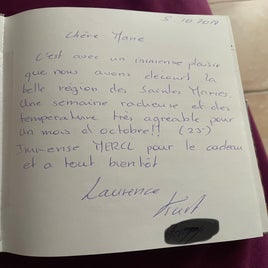 5.10.201
Chère Marie
C'est avec un immense plaisir
que nous avons decourt la
belle région des Saintes Maries.
Une semaine radieuse et des
température très agréable pour
un mois d'octobre!! (25°)
Immense MERCI pour le cadeau
et a tout bientôt
Laurence
Kurt